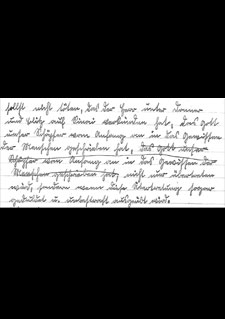 sollst nicht töten, das der Herr unter Donner
und Blitz auf Sinai verkündet hat, das Gott
unser Schöpfer vom Anfang an in das Gewissen
der Menschen geschrieben hat, das Gott unser
Schöpfer vom Anfang an in das Gewissen der
Menschen geschrieben hat, nicht nur übertreten
wird sondern wenn diese Übertretung sogar
geduldet u. unbestraft ausgeübt wird.